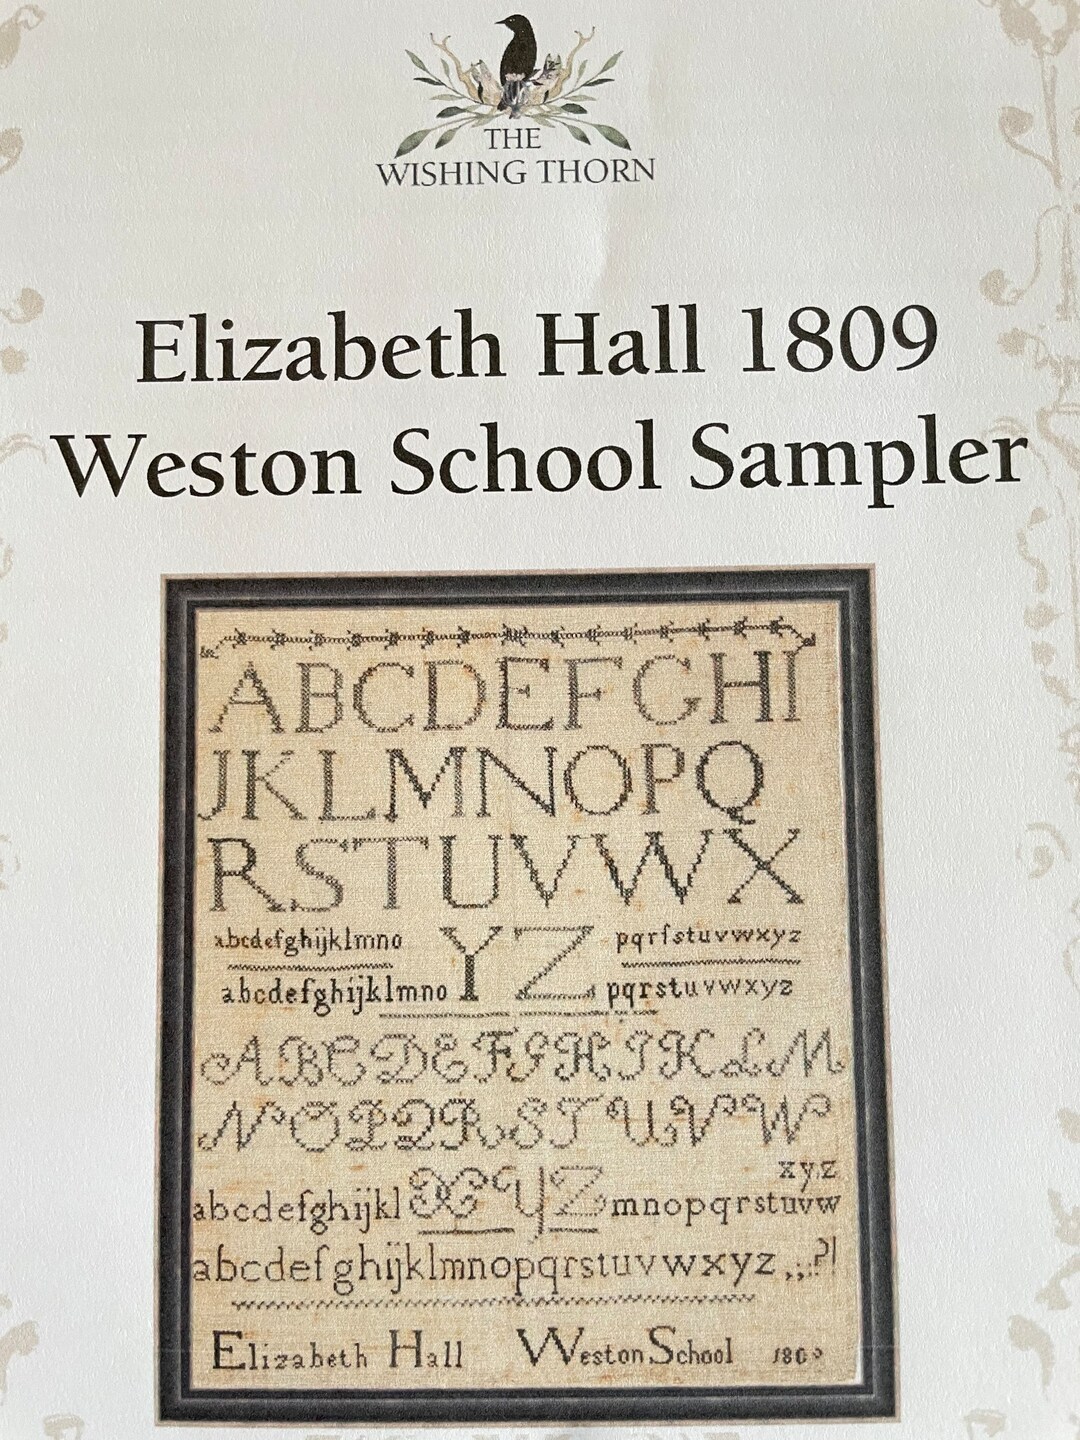 THE
WISHING THORN
Elizabeth Hall 1809
Weston School Sampler
ABCDEFGHI
JKLMNOPQ
RSTUVWX
abcdefghijklmno YZ pqrſstuvwxyz
abcdefghijklmno pqrstuvwxyz
ABCDEFGHIJKLM
NOPQRSTUVW
xyz
abcdefghijkl XYZ mnopqrstuvw
abcdefghijklmnopqrstuvwxyz,;:?!
Elizabeth Hall Weston School 1809